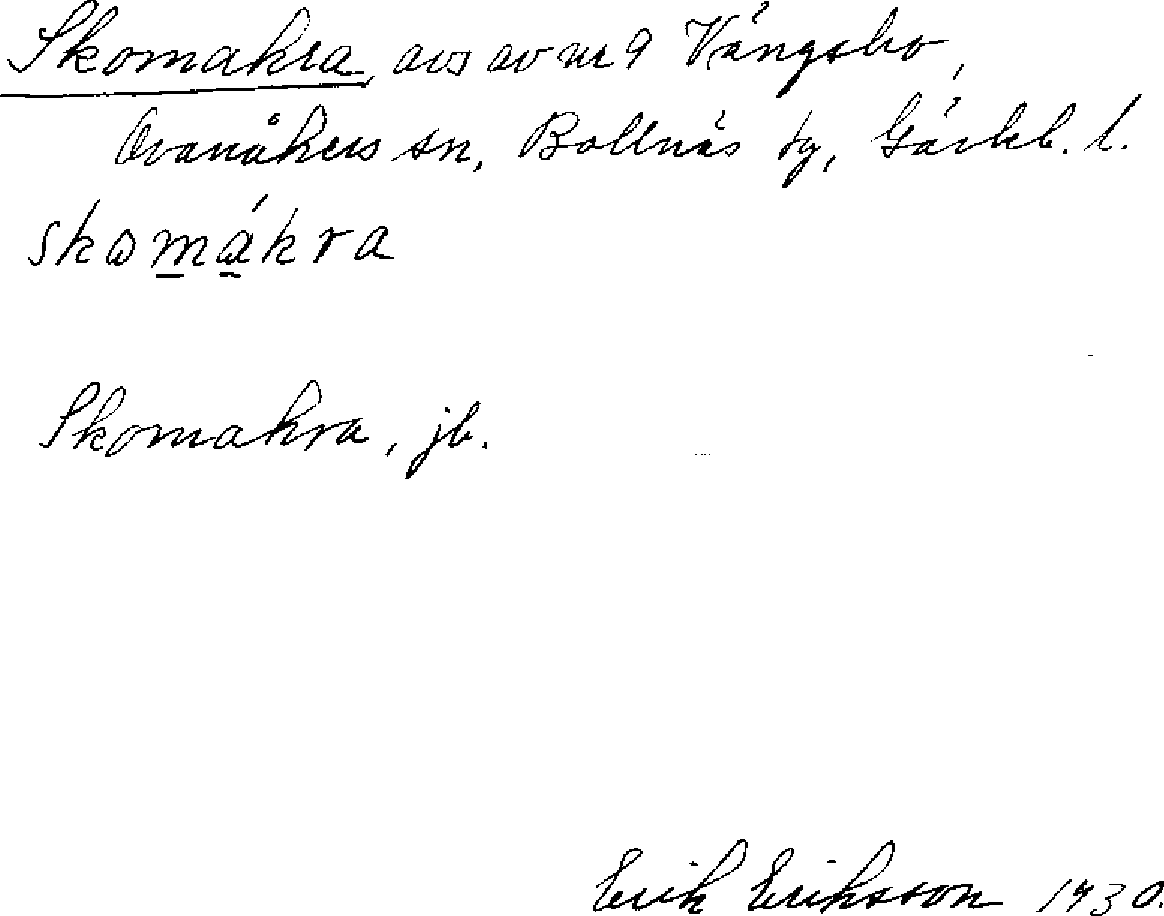 Skomakra, avs av nr 9 Vängsbo,
Ovanåkers sn, Bollnäs tg, Gävleb. l.
skomákra
Skomakra, jb.
Erik Eriksson 1930.